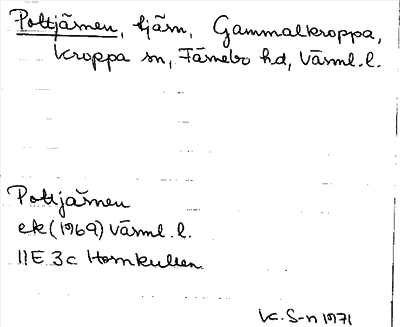 Pottjärnen, tjärn, Gammalkroppa,
Kroppa sn, Färnebo hd, Värml. l.
Pottjärnen
ek (1969) Värml. l.
11E 3c Hornkullen
K. S-n 1971